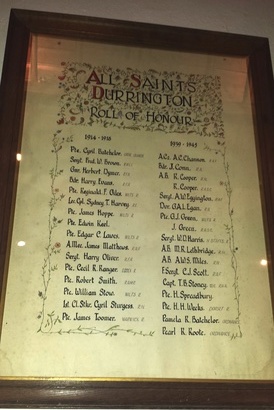 All Saints
Durrington
Roll of Honour
1914-1918
Pte. Cyril Batchelor.
Sergt. Fred. W. Brown.
Gnr. Herbert. Dymer.
Bdr. Harry Evans.
Pte. Reginald. F. Giles. WILTS R
Lce. Cpl. Sydney. T. Harvey.
Pte. James Hoppe. WILTS R
Pte. Edwin Keel.
Pte. Edgar C Lawes. WILTS R
A. Mec. James Matthews.
Sergt. Harry Oliver.
Pte. Cecil R. Ranger.
Pte. Robert Smith.
Pte. William Stow. WILTS R
1st. Cl. Stkr. Cyril Sturgess. R.N.
Pte. James Toomer.
1939-1945
A.C.1. A.C. Channon.
Bdr. J. Conn. R.A.
A.B. R. Cooper. R.N.
R. Cooper.
Sergt. A.W. Eggleton.
Dvr. G.A.L. Egan.
Pte. G.J. Green.
J. Green.
Sergt. W.D. Harris.
A.B. M.R. Lethbridge. R.N.
A.B. A.W.S. Miles. R.N.
F. Sergt. C.J. Scott. R.A.F.
Capt. T.B. Storey.
Pte. H. Spreadbury.
Pte. H.H. Weeks.
Pamela K. Batchelor.
Pearl R. Roote.